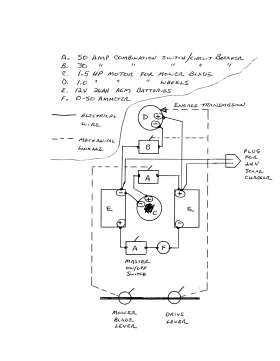 A. 50 AMP COMBINATION SWITCH/CIRCUIT BREAKER
B. 30 " " " "
C. 1.5 HP MOTOR FOR MOWER BLADE
D. 1.0 " " " WHEELS
E. 12V 26AH AGM BATTERIES
F. 0-50 AMMETER
ELECTRICAL
WIRE
MECHANICAL
LINKAGE
ENGINE TRANSMISSION
D
B
A
C
PLUG
FOR
24V
SOLAR
CHARGER
E
E
A
F
MASTER
ON/OFF
SWITCH
MOWER
BLADE
LEVER
DRIVE
LEVER